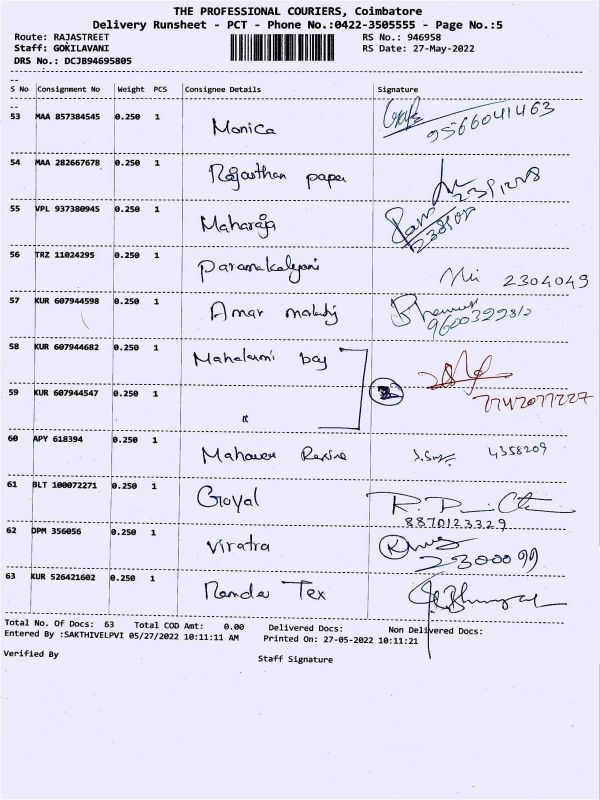 THE PROFESSIONAL COURIERS, Coimbatore
Delivery Runsheet - PCT - Phone No.:0422-3505555 - Page No.:5
Route: RAJASTREET RS No.: 946958
Staff: GOKILAVANI RS Date: 27-May-2022
DRS No.: DCJB94695805
S No Consignment No Weight PCS Consignee Details Signature
53 MAA 857384545 0.250 1 Monica 9566041463
54 MAA 282667678 0.250 1 Rajasthan paper
55 VPL 937380945 0.250 1 Maharaja
56 TRZ 11024295 0.250 1 Paramakalyani 2304049
57 KUR 607944598 0.250 1 Amar
58 KUR 607944682 0.250 1 bag
59 KUR 607944547 0.250 1 "
60 APY 618394 0.250 1 4358209
61 BLT 100072271 0.250 1 Goyal
8870123329
62 DPM 356056 0.250 1 Viratra 2300099
63 KUR 526421602 0.250 1 Nanda Tex
Total No. Of Docs: 63 Total COD Amt: 0.00 Delivered Docs: Non Delivered Docs:
Entered By :SAKTHIVELPVI 05/27/2022 10:11:11 AM Printed On: 27-05-2022 10:11:21
Verified By Staff Signature